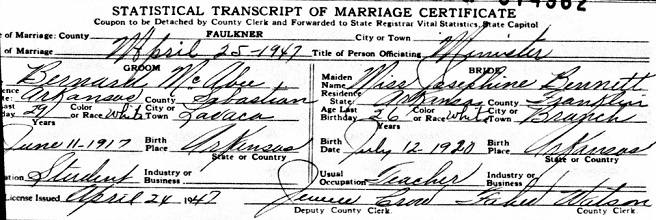 STATISTICAL TRANSCRIPT OF MARRIAGE CERTIFICATE
Coupon to be Detached by County Clerk and Forwarded to State Registrar Vital Statistics, State Capitol
of Marriage: County FAULKNER City or Town
of Marriage April 25-1947 Title of Person Officiating Minister
GROOM BRIDE
Bernard McAbee Maiden Name Miss Josephine Bennett
Arkansas County Sebastian Residence State: Arkansas County Franklin
day 29 Years Color or Race White City or Town Lavaca Age Last Birthday 26 Years Color or Race White City or Town Branch
June 11-1917 Birth Place Arkansas State or Country Birth Date July 12-1920 Birth Place Arkansas State or Country
ation Student Industry or Business Usual Occupation Teacher Industry or Business
License Issued April 24 1947 Deputy County Clerk. County Clerk.